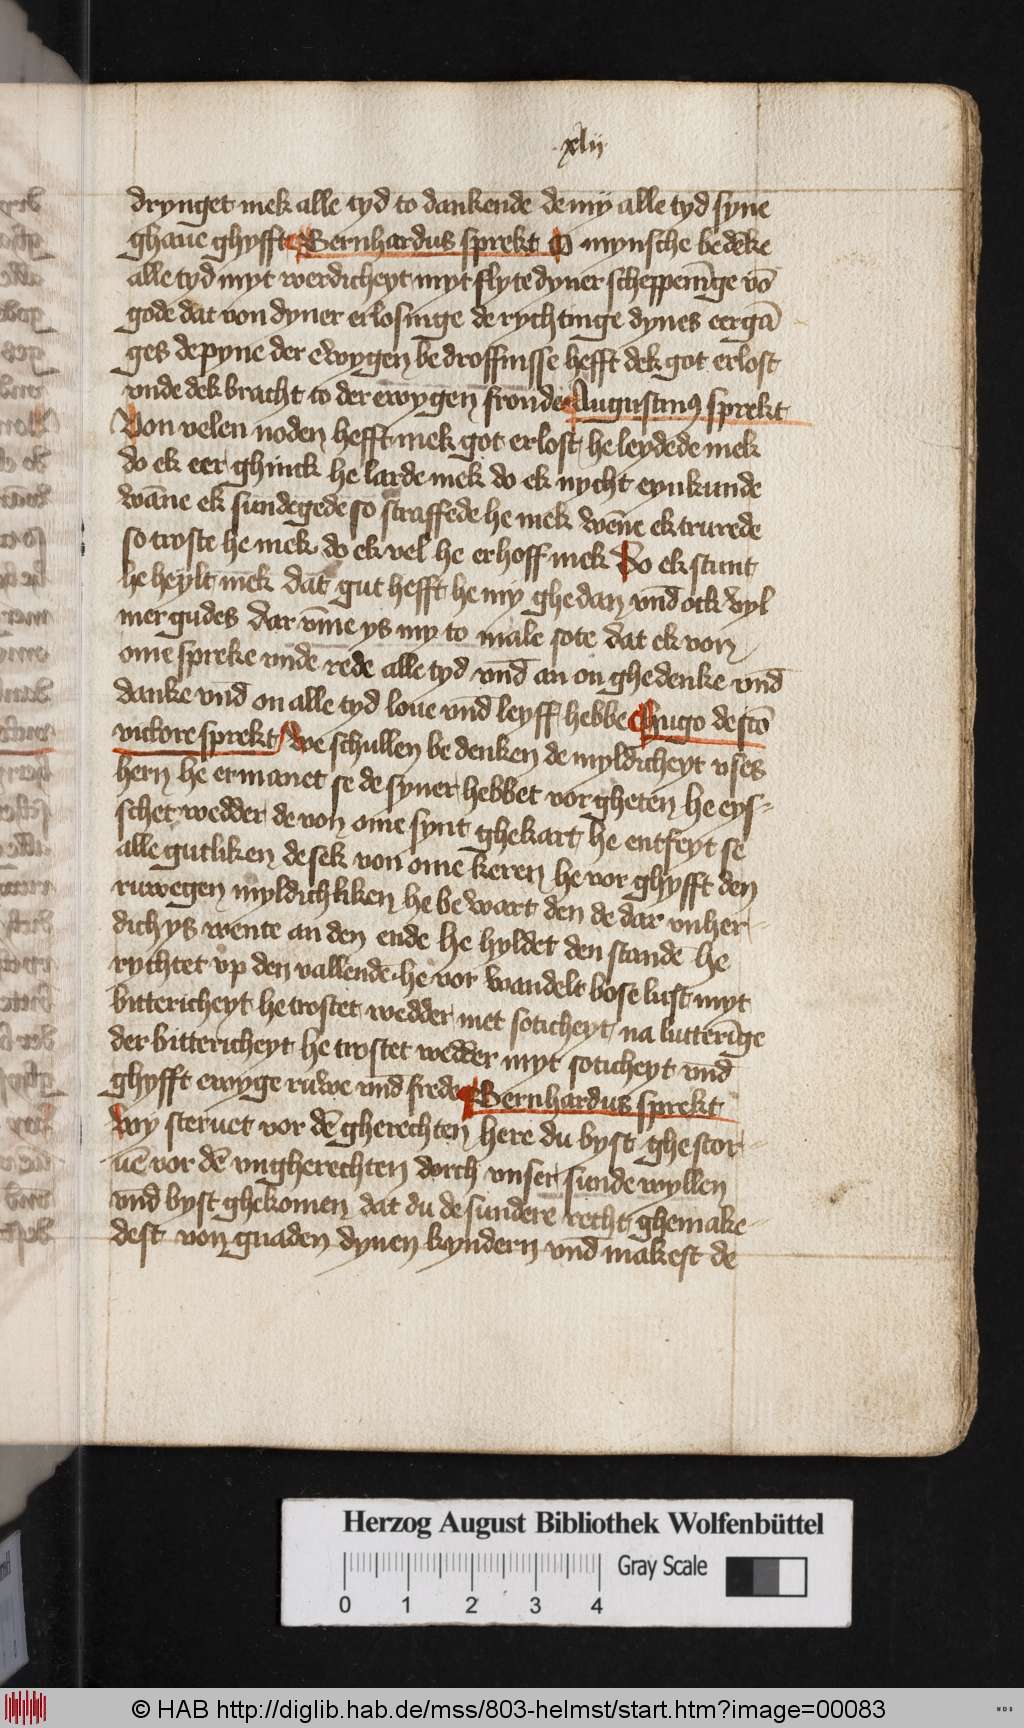 xlij
drynget mek alle tyd to dankende de my alle tyd syne
ghaue ghyfft Bernhardus sprekt O mynsche bedēke
alle tyd myt werdicheyt myt flyte dyner scheppenīge vō
gode dat von dyner erlosinge de rychtinge dynes eergā
ges de pyne der ewygen bedroffnisse hefft dek got erlost
vnde dek bracht to der ewygen fronde Augustinꝰ sprekt
Von velen noden hefft mek got erlost he leydede mek
do ek eer ghinck he larde mek do ek nycht eynkunde
wāne ek sundegede so straffede he mek wēne ek trurede
so troste he mek do ek vel he erhoff mek Do ek stunt
he heylt mek dat gut hefft he my ghedan vnd̄ ock vyl
mer gudes dar vm̄e ys my to male sote dat ek von
ome spreke vnde rede alle tyd vnd̄ an on ghedenke vnd̄
danke vnd̄ on alle tyd loue vnd̄ leyff hebbe Hugo de stō
victore sprekt We schullen bedenken de myldicheyt vses
hern he ermanet se de syner hebbet vorgheten he eys-
schet wedder de von ome synt ghekart he entfeyt se
alle gutliken de sek von ome keren he vorghyfft den
ruwegen myldichliken he bewart den de dar vnher-
dich ys wente an den ende he hyldet den standē he
rychtet vp den vallendē he vorwandelt bose lust myt
bittericheyt he trostet wedder met soticheyt na lutterīge
der bittericheyt he trostet wedder myt soticheyt vnd̄
ghyfft ewyge ruwe vnd̄ frede Bernhardus sprekt
wy steruet vor dē gherechten here du byst ghestor-
uē vor dē vngherechten dorch vnser sunde wyllen
vnd̄ byst ghekomen dat du de sundere recht ghemake-
dest von gnaden dynen kyndern vnd̄ makest de
Herzog August Bibliothek Wolfenbüttel
Gray Scale
0 1 2 3 4
© HAB http://diglib.hab.de/mss/803-helmst/start.htm?image=00083